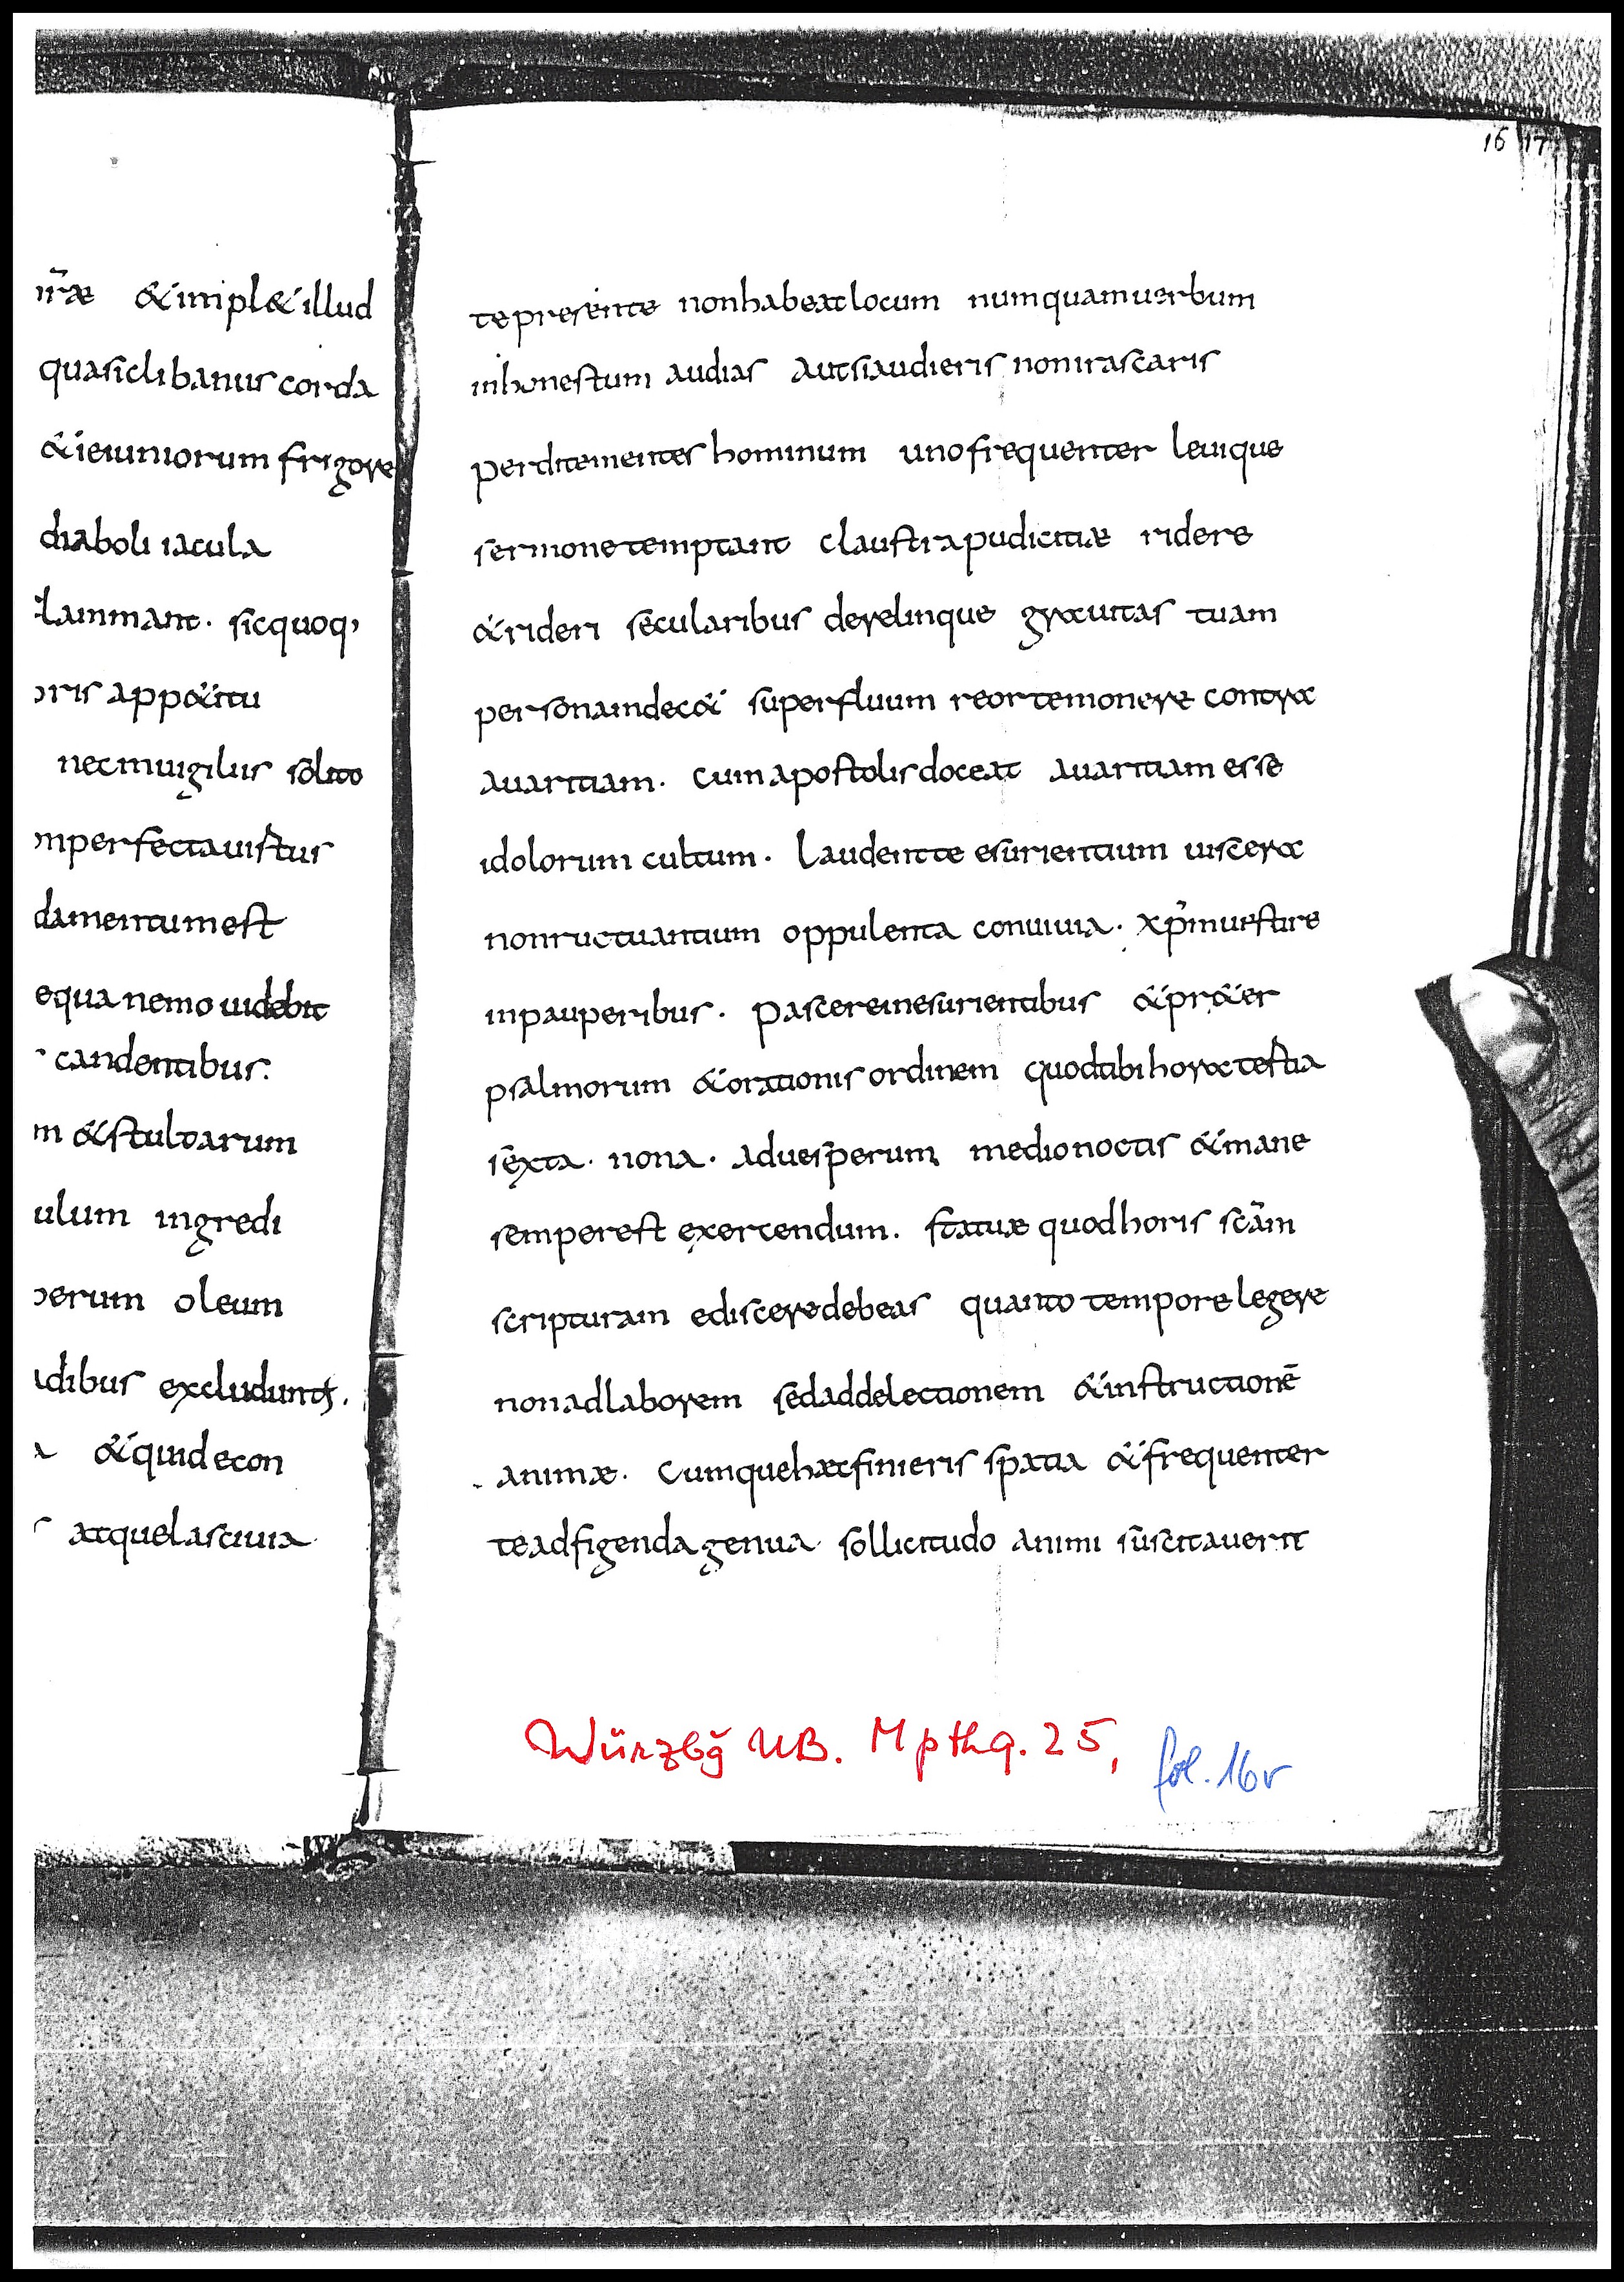 nr̄ae &impl& illud
quasiclibanus corda
&ieiuniorum frigore
diaboli iacula
flammant. sicquoq,
oris app&itu
necinuigiliis solito
inperfectauirtus
damentumest
equanemo uidebit
candentibus.
m &stultarum
ulum ingredi
perum oleum
dibus excludunt.
&quidecon
atquelasciuia
16 17
tepresente nonhabeatlocum numquamuerbum
inhonestum audias autsiaudieris nonirascaris
perditementes hominum unofrequenter leuique
sermonetemptant claustrapudicitiae ridere
&rideri secularibus derelinque grauitas tuam
personamdec& superfluum reortemonere contra
auaritiam. cumapostolisdoceat auaritiamesse
idolorum cultum. laudentte esurientium uiscera
nonructuantium oppulenta conuiuia. xp̄muestire
inpauperibus. pascereinesurientibus &pr&er
psalmorum &orationis ordinem quodtibihoratertia
sexta. nona. aduesperum medionoctis &mane
semperest exercendum. statuae quodhoris scām
scripturam edisceredebeas quanto tempore legere
nonadlaborem sedaddelectionem &instructionē
animae. cumquehaecfinieris spatia &frequenter
teadfigendagenua sollicitudo animi suscitauerit
Würzbg UB. M p th q. 25, fol. 16r